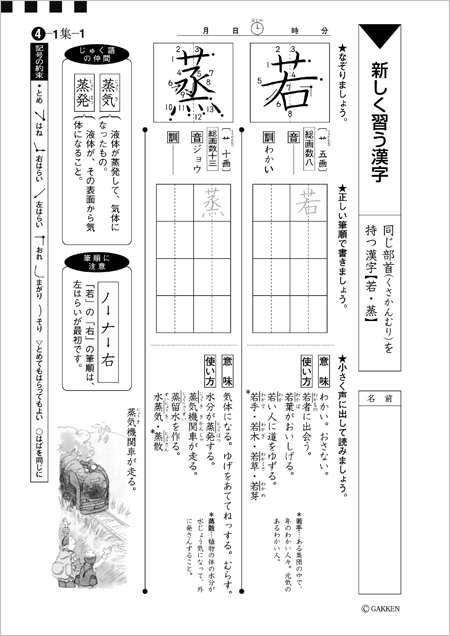 新しく習う漢字
同じ部首(くさかんむり)を
持つ漢字【若・蒸】
名前
月 日 はじめ 時 分
★なぞりましょう。
★正しい筆順で書きましょう。
★小さく声に出して読みましょう。
若
艹 五画
総画数八
音
訓 わかい
若
意味 わかい。おさない。
使い方 若者に出会う。
若葉がおいしげる。
若い人に道をゆずる。
*若手・若木・若草・若芽
*若手…ある集団の中で、
年のわかい人々。元気の
あるわかい人。
蒸
艹 十画
総画数十三
音 ジョウ
訓
蒸
意味 気体になる。ゆげをあててねっする。むらす。
使い方 水分が蒸発する。
蒸気機関車が走る。
蒸留水を作る。
水蒸気・蒸散*
*蒸散…植物の体の水分が
水じょう気になって、外
に発さんすること。
じゅく語の仲間
蒸気 液体が蒸発して、気体に
なったもの。
蒸発 液体が、その表面から気
体になること。
筆順に注意
ノ→ナ→右
「若」の「右」の筆順は、
左はらいが最初です。
蒸気機関車が走る。
④-1集-1
記号の約束 ・とめ はね 右はらい 左はらい おれ まがり そり ▽とめてもはらってもよい ○はばを同じに
©GAKKEN